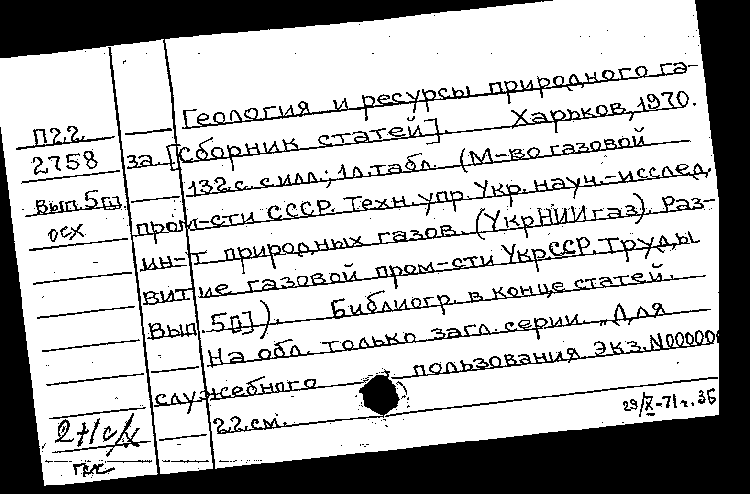 Геология и ресурсы природного га-
П22.
2758
вып.5[1].
осх
за [сборник статей]. Харьков, 1970.
132 с. с илл.; 1 л. табл. (М-во газовой
пром-сти СССР. Техн. упр. Укр. науч.-исслед.
ин-т природных газов. (УкрНИИгаз). Раз-
витие газовой пром-сти УкрССР. Труды
Вып. 5[1]). Библиогр. в конце статей.
На обл. только загл. серии. „Для
служебного пользования Экз. N000000
22 см.
29/X-71г. 35
2+1с/х